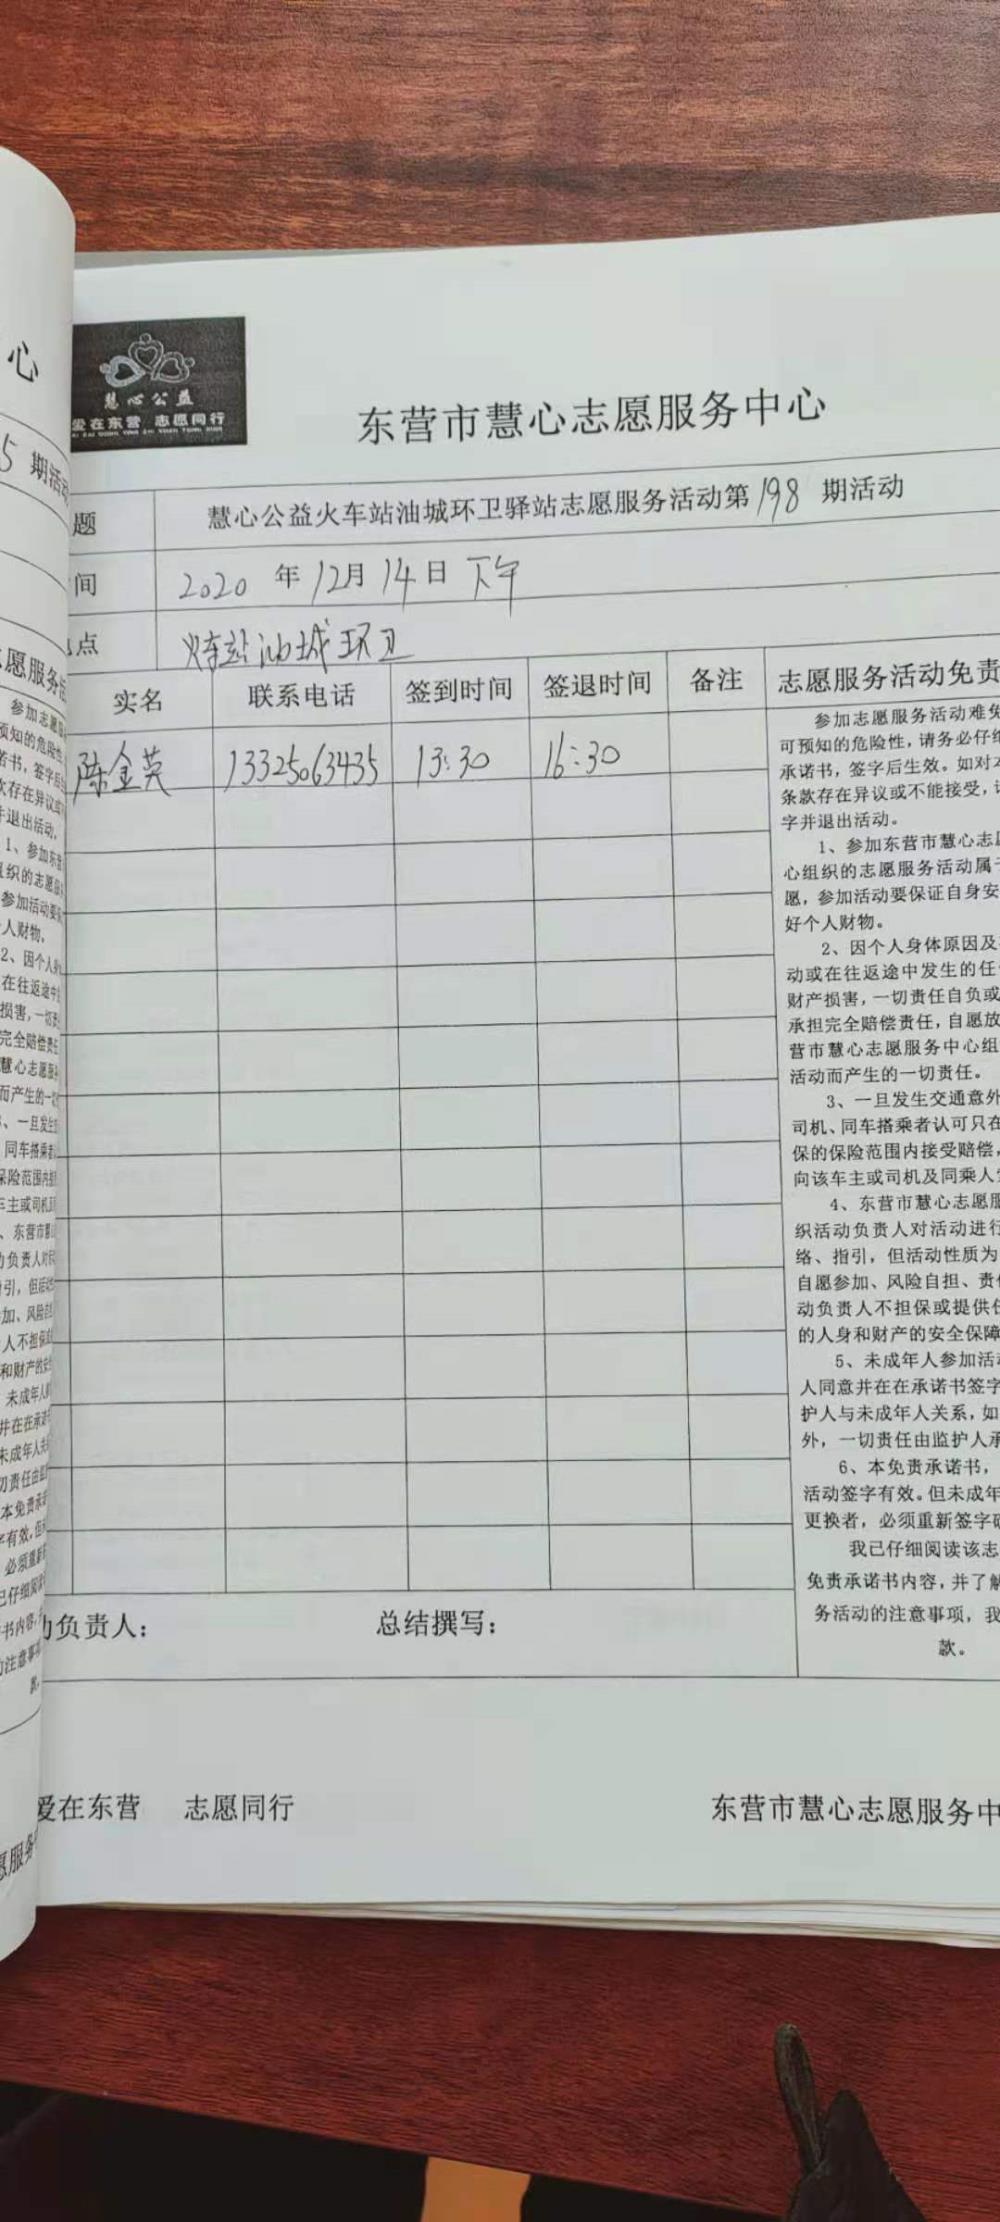 心
5 期活动
慧心公益
爱在东营 志愿同行
东营市慧心志愿服务中心
题 慧心公益火车站油城环卫驿站志愿服务活动第198期活动
间 2020年12月14日 下午
点 火车站油城环卫
实名 联系电话 签到时间 签退时间 备注 志愿服务活动免责
陈金英 13325063435 13:30 16:30
参加志愿服务活动难免
可预知的危险性，请务必仔细
承诺书，签字后生效。如对本
条款存在异议或不能接受，
字并退出活动。
1、参加东营市慧心志愿
心组织的志愿服务活动属于
愿，参加活动要保证自身安
好个人财物。
2、因个人身体原因及
动或在往返途中发生的任
财产损害，一切责任自负或
承担完全赔偿责任，自愿放
营市慧心志愿服务中心组
活动而产生的一切责任。
3、一旦发生交通意外
司机、同车搭乘者认可只在
保的保险范围内接受赔偿，
向该车主或司机及同乘人
4、东营市慧心志愿服
织活动负责人对活动进行
络、指引，但活动性质为
自愿参加、风险自担、责
动负责人不担保或提供任
的人身和财产的安全保障
5、未成年人参加活动
人同意并在在承诺书签字
护人与未成年人关系，如
外，一切责任由监护人承
6、本免责承诺书，
活动签字有效。但未成年
更换者，必须重新签字确
我已仔细阅读该志
免责承诺书内容，并了解
务活动的注意事项，我
款。
负责人： 总结撰写：
爱在东营 志愿同行 东营市慧心志愿服务中